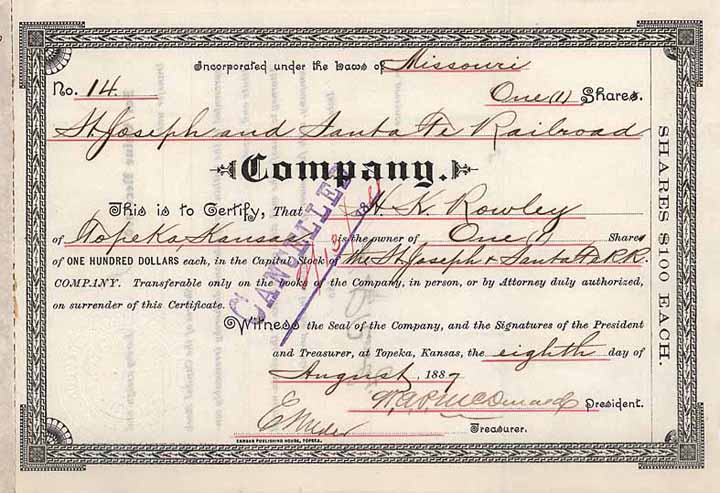 Incorporated under the Laws of Missouri
No. 14. One (1) Shares.
St Joseph and Santa Fe Railroad
Company.
This is to Certify, That H. K. Rowley
of Topeka Kansas is the owner of One (1) Shares
of ONE HUNDRED DOLLARS each, in the Capital Stock of the St Joseph & Santa Fe R.R.
COMPANY. Transferable only on the books of the Company, in person, or by Attorney duly authorized,
on surrender of this Certificate.
Witness the Seal of the Company, and the Signatures of the President
and Treasurer, at Topeka, Kansas, the eighth day of
August, 1887
McDonald President.
E Wilder
Treasurer.
KANSAS PUBLISHING HOUSE, TOPEKA.
SHARES $100 EACH.
CANCELLED